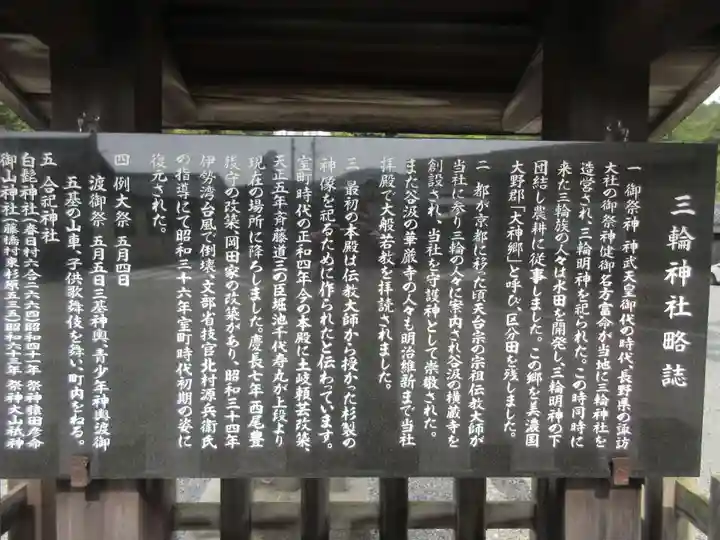 三輪神社略誌
一 御祭神 神武天皇御代の時代、長野県の諏訪
大社の御祭神健御名方富命が当地に三輪神社を
造営され、三輪明神を祀られた。この時同時に
来た三輪族の人々は水田を開発し、三輪明神の下
団結し農耕に従事しました。この郷を美濃国
大野郡「大神郷」と呼び、区分田を残しました。
二 都が京都に移った頃天台宗の宗祖伝教大師が
当社に参り三輪の人々に案内され谷汲の横蔵寺を
創設され、当社を守護神として崇敬された。
また谷汲の華厳寺の人々も明治維新まで当社
拝殿で大般若教を拝読されました。
三 最初の本殿は伝教大師から授かった杉製の
神像を祀るために作られたと伝わっています。
室町時代の正和四年今の本殿に土岐頼芸改築、
天正五年斉藤道三の臣堀池千代寿丸が上段より
現在の場所に降ろしました。慶長七年西尾豊
後守の改築、岡田家の改築があり、昭和三十四年
伊勢湾台風で倒壊、文部省技官北村源兵衛氏
の指導にて昭和三十六年室町時代初期の姿に
復元された。
四 例大祭 五月四日
渡御祭 五月五日三基神輿、青少年神輿渡御
五基の山車、子供歌舞伎を舞い、町内をねる。
五 合祀神社
白髭神社(春日村六合二六六四)昭和四十二年 祭神猿田彦命
御山神社(藤橋村東杉原五三五)昭和六十三年 祭神大山祇神